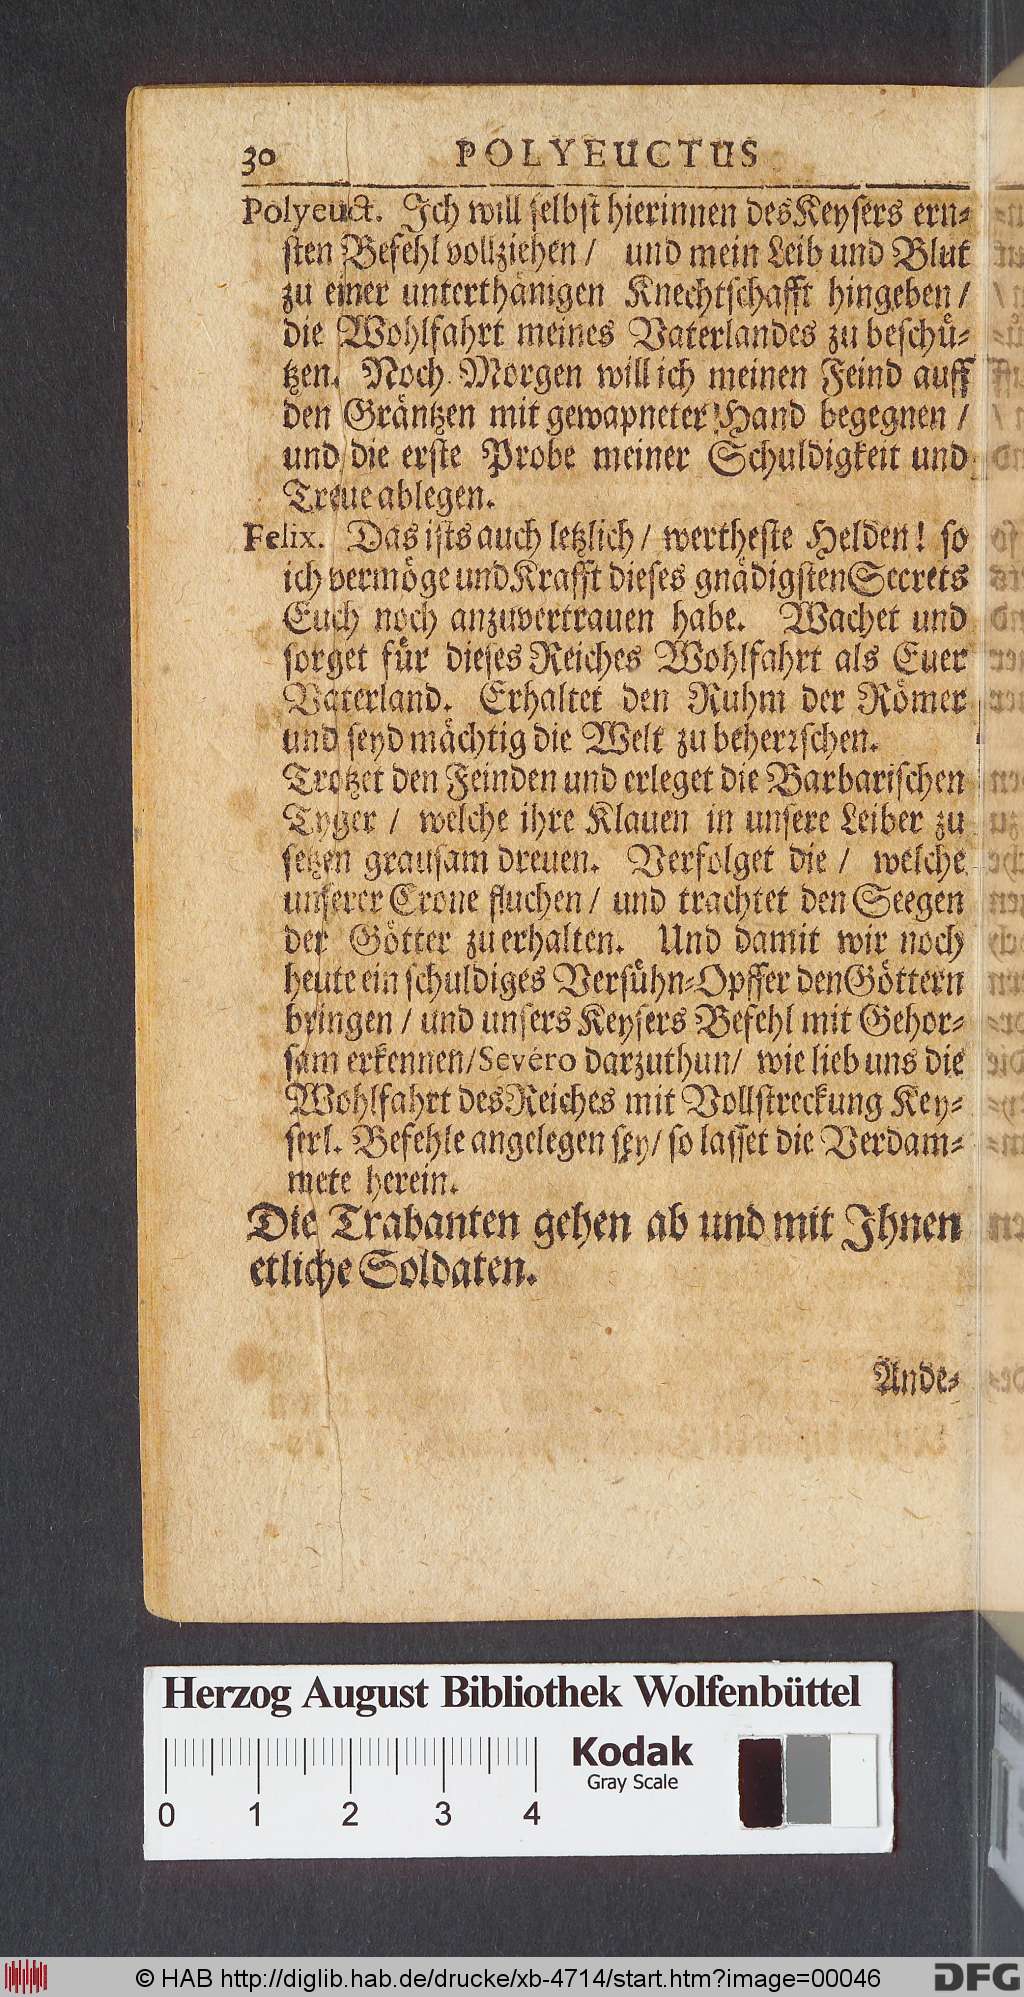 30 POLYEUCTUS
Polyeuct. Ich will selbst hierinnen des Keysers ern-
sten Befehl vollziehen / und mein Leib und Blut
zu einer unterthänigen Knechtschafft hingeben /
die Wohlfahrt meines Vaterlandes zu beschü-
tzen. Noch Morgen will ich meinen Feind auff
den Gräntzen mit gewapneter Hand begegnen /
und die erste Probe meiner Schuldigkeit und
Treue ablegen.
Felix. Das ists auch letzlich / wertheste Helden! so
ich vermöge und Krafft dieses gnädigsten Secrets
Euch noch anzuvertrauen habe. Wachet und
sorget für dieses Reiches Wohlfahrt als Euer
Vaterland. Erhaltet den Ruhm der Römer
und seyd mächtig die Welt zu beherrschen.
Trotzet den Feinden und erleget die Barbarischen
Tyger / welche ihre Klauen in unsere Leiber zu
setzen grausam dreuen. Verfolget die / welche
unserer Crone fluchen / und trachtet den Seegen
der Götter zu erhalten. Und damit wir noch
heute ein schuldiges Versühn-Opffer den Göttern
bringen / und unsers Keysers Befehl mit Gehor-
sam erkennen / Severo darzuthun / wie lieb uns die
Wohlfahrt des Reiches mit Vollstreckung Key-
serl. Befehle angelegen sey / so lasset die Verdam-
mete herein.
Die Trabanten gehen ab und mit Ihnen
etliche Soldaten.
Ande-
Herzog August Bibliothek Wolfenbüttel
Kodak
Gray Scale
0 1 2 3 4
© HAB http://diglib.hab.de/drucke/xb-4714/start.htm?image=00046
DFG